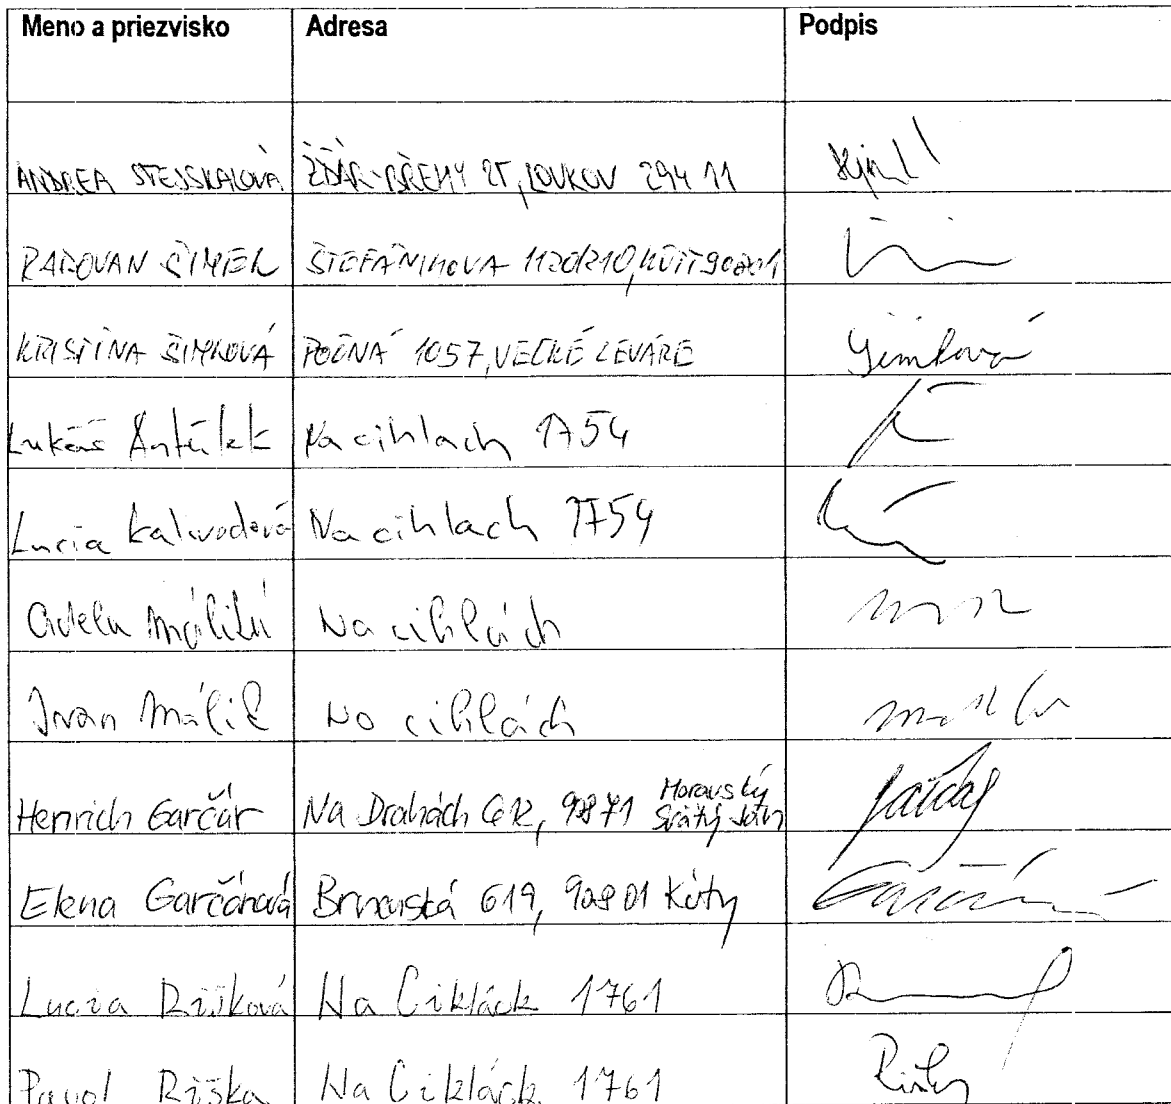 Meno a priezvisko Adresa Podpis
ANDREA STEJSKALOVÁ ŽĎÁR-BŘEHY 25, LOUKOV 294 11
RADOVAN ŠIMEK ŠTEFÁNIKOVA 1120/210, KÚTY 90801
KRISTÍNA ŠIMKOVÁ POĽNÁ 1057, VEĽKÉ LEVÁRE Šimková
Lukáš Antálek Na cihlach 1754
Lucia Kalivodová Na cihlach 1754
Adela Máliková Na cihlách
Ivan Málik Na cihlách
Henrich Garčár Na Drahách 612, 90871 Moravský Svätý Ján
Elena Garčárová Brnenská 619, 90801 Kúty
Lucia Rišková Na Cihlách 1761
Pavol Riška Na Cihlách 1761